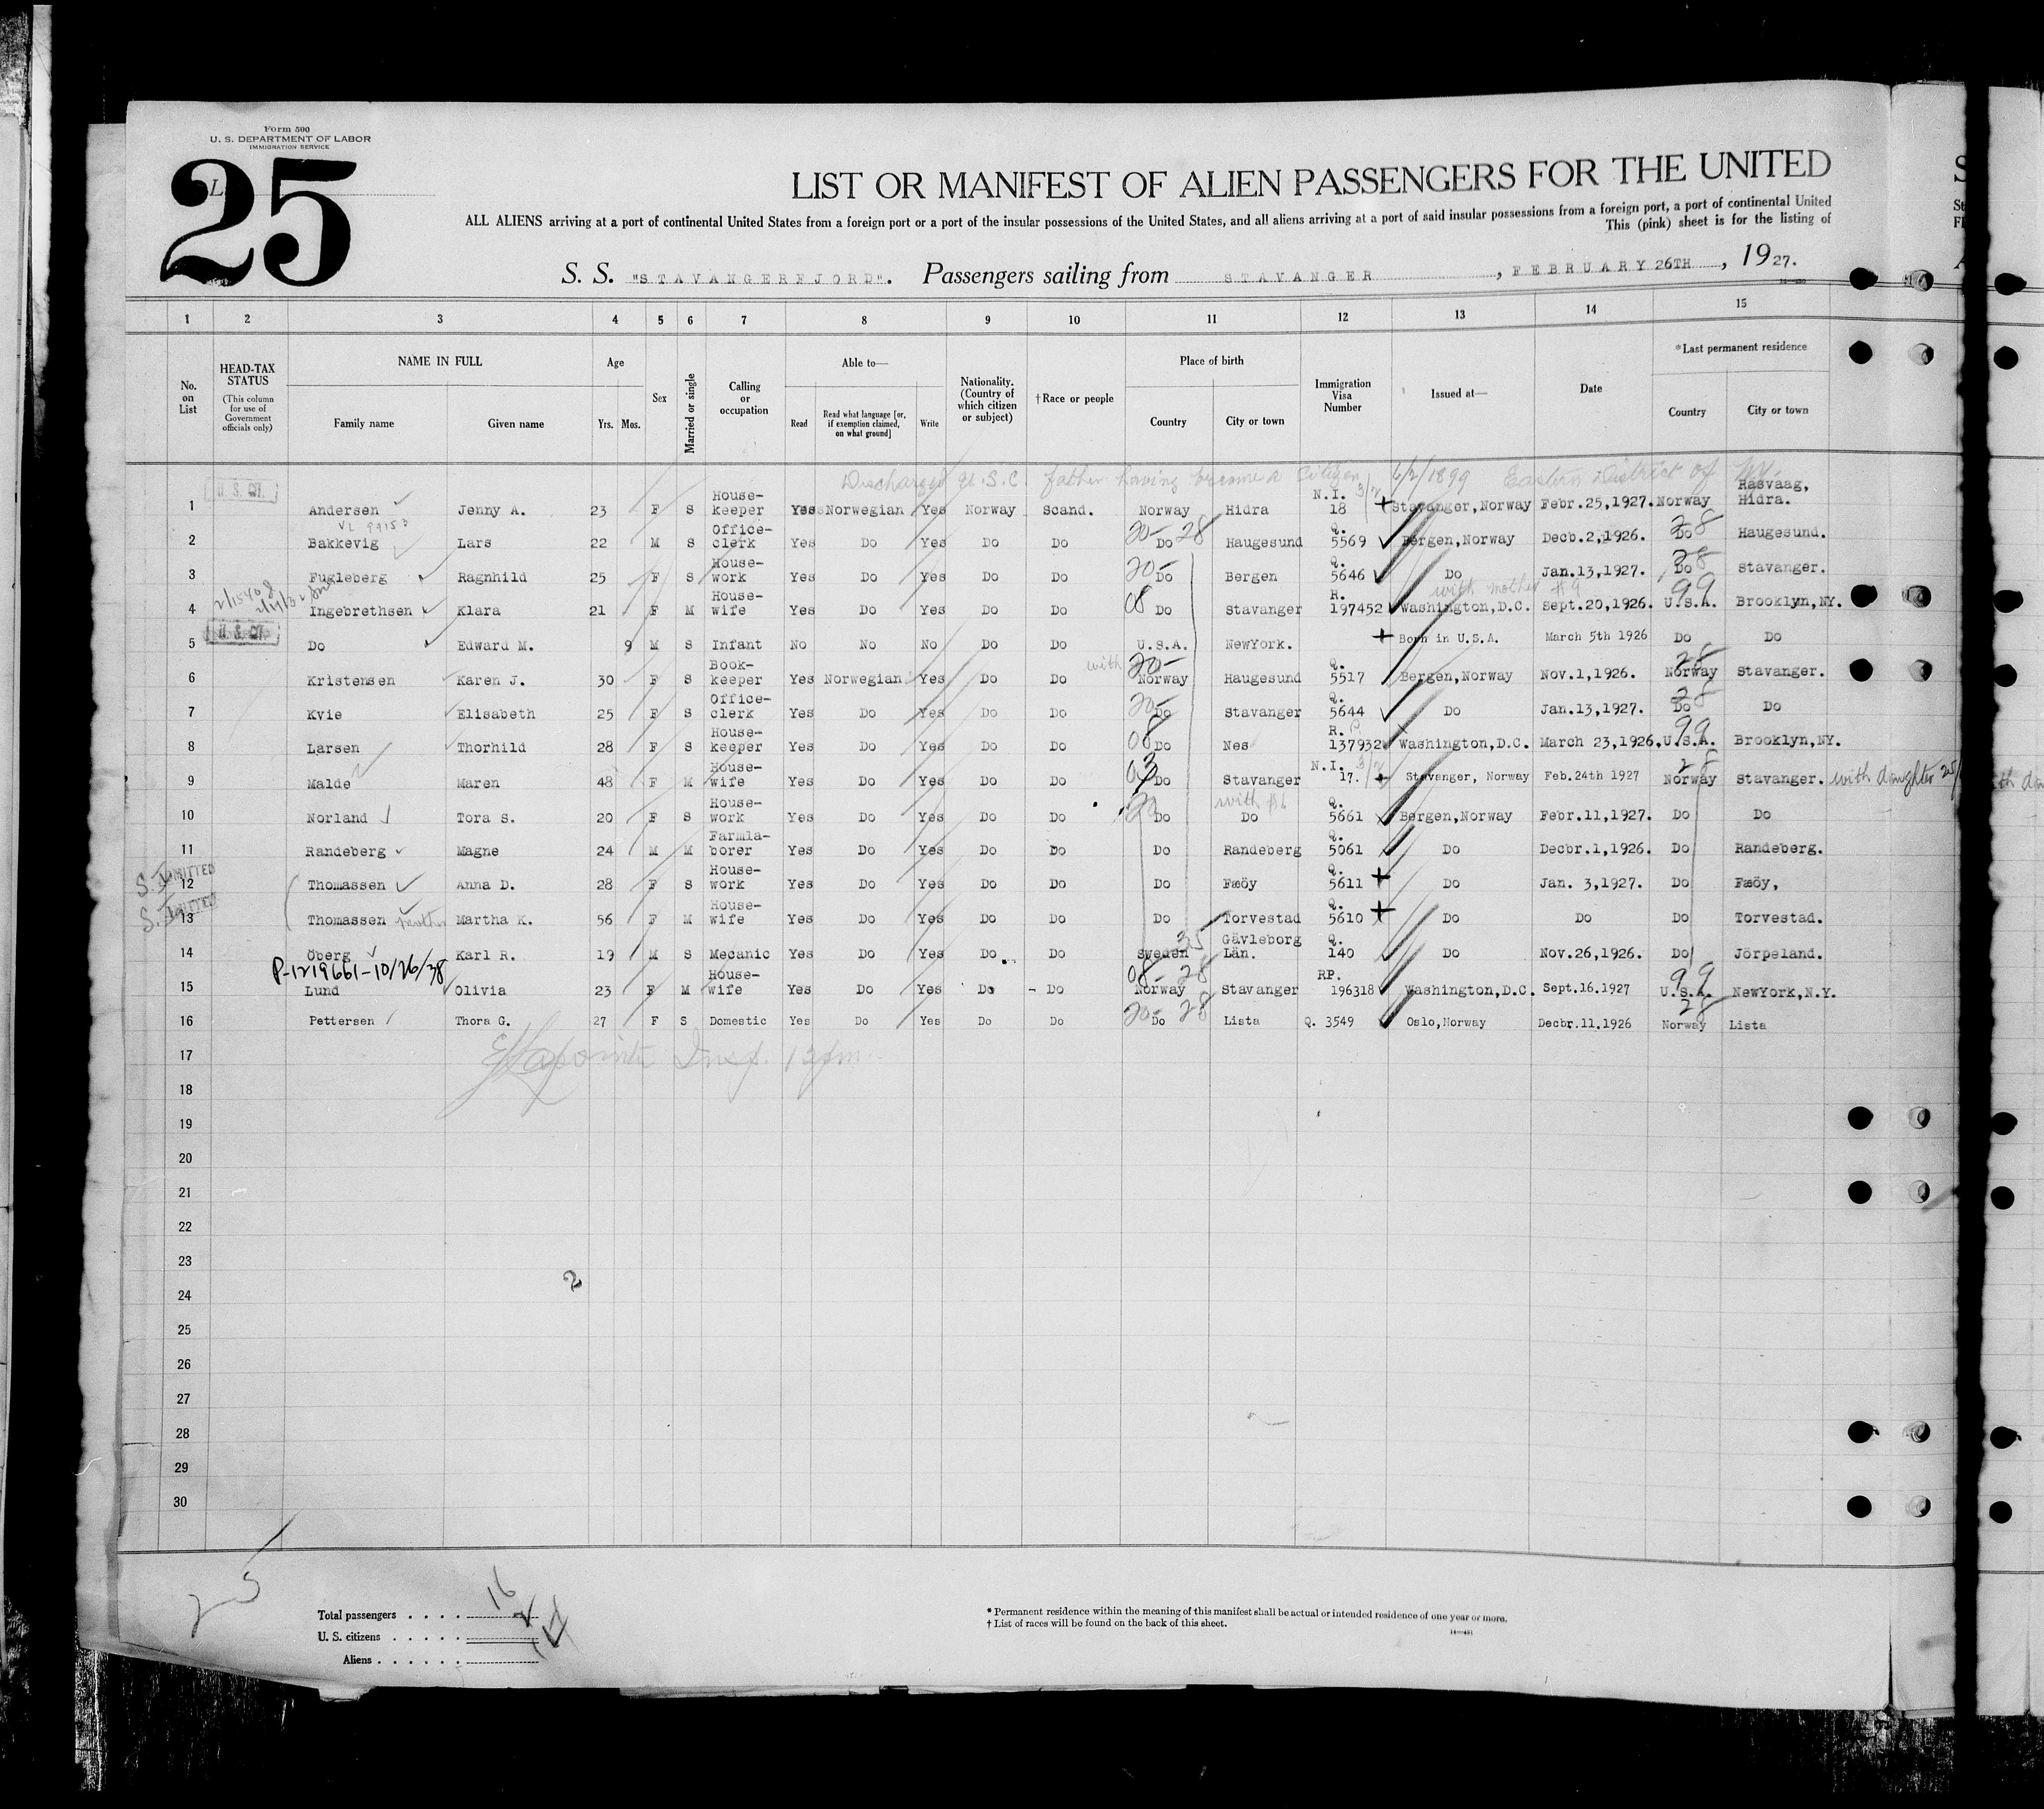 Form 500
U. S. DEPARTMENT OF LABOR
IMMIGRATION SERVICE
25
LIST OR MANIFEST OF ALIEN PASSENGERS FOR THE UNITED
ALL ALIENS arriving at a port of continental United States from a foreign port or a port of the insular possessions of the United States, and all aliens arriving at a port of said insular possessions from a foreign port, a port of continental United
This (pink) sheet is for the listing of
S. S. "STAVANGERFJORD". Passengers sailing from STAVANGER, FEBRUARY 26TH, 1927.
1 2 3 4 5 6 7 8 9 10 11 12 13 14 15
No. on List
HEAD-TAX STATUS (This column for use of Government officials only)
NAME IN FULL Family name Given name
Age Yrs. Mos.
Sex
Married or single
Calling or occupation
Able to— Read Read what language [or, if exemption claimed, on what ground] Write
Nationality. (Country of which citizen or subject)
† Race or people
Place of birth Country City or town
Immigration Visa Number
Issued at—
Date
* Last permanent residence Country City or town
Discharged U.S.C. father having become a Citizen 6/2/1899 Eastern District of N.Y.
1 Andersen Jenny A. 23 F S House-keeper Yes Norwegian Yes Norway Scand. Norway Hidra N.I. 18 Stavanger, Norway Febr.25,1927. Norway Rasvaag, Hidra.
2 Bakkevig Lars 22 M S Office-clerk Yes Do Yes Do Do 20- 28 Do Haugesund Q. 5569 Bergen,Norway Decb.2,1926. 28 Do Haugesund.
3 Fugleberg Ragnhild 25 F S House-work Yes Do Yes Do Do 20- Do Bergen Q. 5646 Do Jan.13,1927. 28 Do Stavanger.
with mother #9
4 Ingebrethsen Klara 21 F M House-wife Yes Do Yes Do Do 08 Do Stavanger R. 197452 Washington,D.C. Sept.20,1926. 99 U.S.A. Brooklyn,NY.
U. S. CIT.
5 Do Edward M. 9 M S Infant No No No Do Do U.S.A. NewYork. Born in U.S.A. March 5th 1926 Do Do
6 Kristensen Karen J. 30 F S Book-keeper Yes Norwegian Yes Do Do with 20- Norway Haugesund Q. 5517 Bergen,Norway Nov.1,1926. 28 Norway Stavanger.
7 Kvie Elisabeth 25 F S Office-clerk Yes Do Yes Do Do 20- Do Stavanger Q. 5644 Do Jan.13,1927. 28 Do Do
8 Larsen Thorhild 28 F S House-keeper Yes Do Yes Do Do 08 Do Nes R. 137932 Washington,D.C. March 23,1926. 99 U.S.A. Brooklyn,NY.
9 Malde Maren 48 F M House-wife Yes Do Yes Do Do 03 Do Stavanger N.I. 17. Stavanger, Norway Feb.24th 1927 28 Norway Stavanger. with daughter 25/
10 Norland Tora S. 20 F S House-work Yes Do Yes Do Do 20 Do with #6 Do Q. 5661 Bergen,Norway Febr.11,1927. Do Do
11 Randeberg Magne 24 M M Farmla-borer Yes Do Yes Do Do Do Randeberg Q. 5061 Do Decbr.1,1926. Do Randeberg.
12 Thomassen Anna D. 28 F S House-work Yes Do Yes Do Do Do Fæöy Q. 5611 Do Jan. 3,1927. Do Fæöy,
13 Thomassen mother Martha K. 56 F M House-wife Yes Do Yes Do Do Do Torvestad Q. 5610 Do Do Do Torvestad.
14 Öberg Karl R. 19 M S Mecanic Yes Do Yes Do Do 35 Sweden Gävleborg Län. Q. 140 Do Nov.26,1926. Do Jörpeland.
P-1219661-10/26/38
15 Lund Olivia 23 F M House-wife Yes Do Yes Do Do 08- 28 Norway Stavanger RP. 196318 Washington,D.C. Sept.16.1927 99 U.S.A. NewYork,N.Y.
16 Pettersen Thora G. 27 F S Domestic Yes Do Yes Do Do 20- 28 Do Lista Q. 3549 Oslo,Norway Decbr.11.1926 28 Norway Lista
17 Insp. 12pm
18
19
20
21
22
23
2
24
25
26
27
28
29
30
25
Total passengers . . . . . 16
U. S. citizens . . . . . 2
Aliens . . . . . . 14
* Permanent residence within the meaning of this manifest shall be actual or intended residence of one year or more.
† List of races will be found on the back of this sheet.